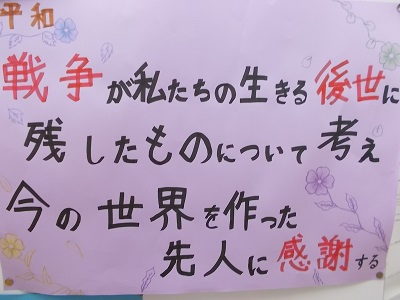 平和
戦争が私たちの生きる後世に
残したものについて考え
今の世界を作った
先人に感謝する